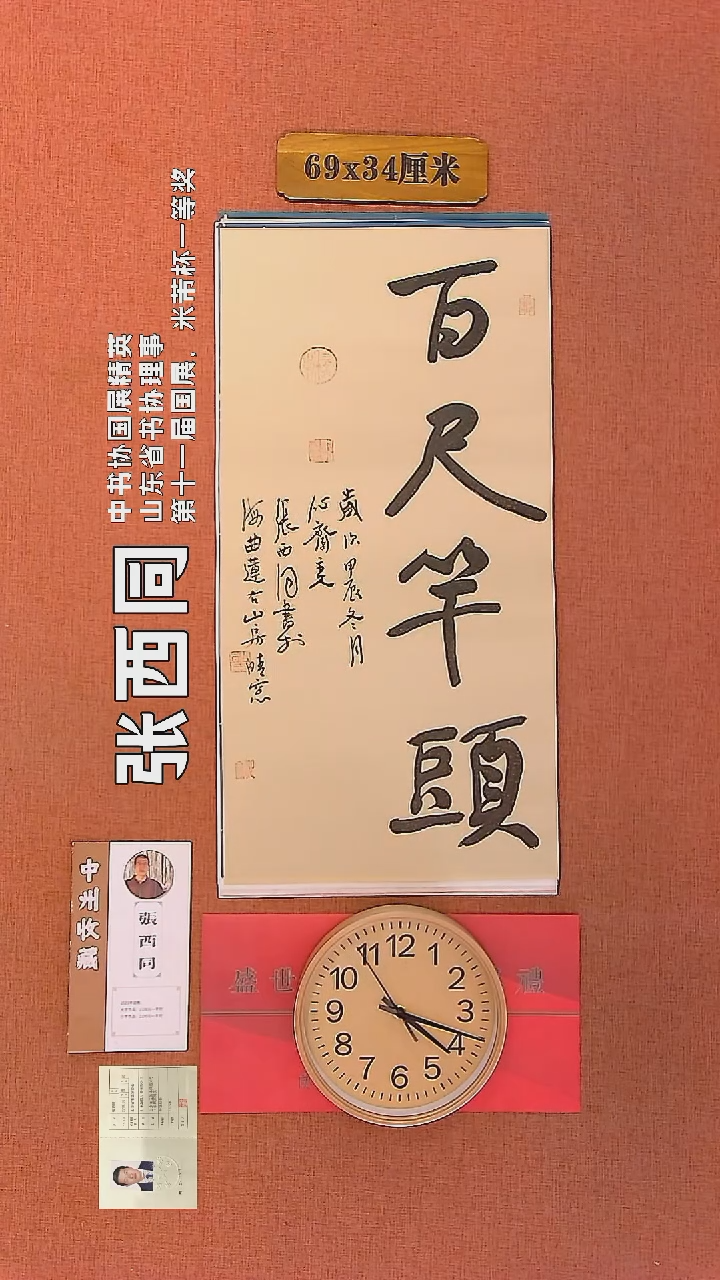 69x34厘米
百尺竿頭
歲次甲辰冬月
沁齋主
張西同書於
海曲蓮古山房晴窓
中书协国展精英
山东省书协理事
第十一届国展、米芾杯一等奖
张西同
張西同
盛世
禮
12
1
2
3
4
5
6
7
8
9
10
11